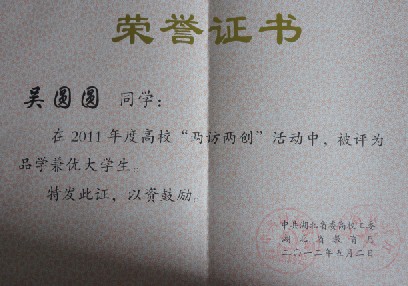 荣誉证书
吴圆圆 同学：
在2011年度高校“万访两创”活动中，被评为
品学兼优大学生。
特发此证，以资鼓励。
中共湖北省委高校工委
湖北省教育厅
二〇一二年五月二日